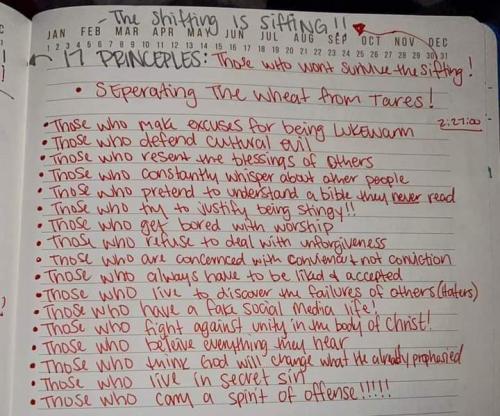 - The Shifting IS SIFTING!!
JAN FEB MAR APR MAY JUN JUL AUG SEP OCT NOV DEC
1 2 3 4 5 6 7 8 9 10 11 12 13 14 15 16 17 18 19 20 21 22 23 24 25 26 27 28 29 30 31
17 PRINCEPLES: Those who wont survive the sifting!
• SEperating The wheat from Tares!
2:27:00
• Those who make excuses for being Lukewarm
• Those who defend cultural evil
• Those who resent the blessings of others
• Those who constantly whisper about other people
• Those who pretend to understand a bible they never read
• Those who try to justify being stingy!!
• Those who get bored with worship
• Those who refuse to deal with unforgiveness
• Those who are concerned with convience & not conviction
• Those who always have to be liked & accepted
• Those who live to discover the failures of others (Haters)
• Those who have a fake social media life!
• Those who fight against unity in the body of Christ!
• Those who believe everything they hear
• Those who think God will change what He already prophesied
• Those who live in secret sin
• Those who carry a spirit of offense!!!!!